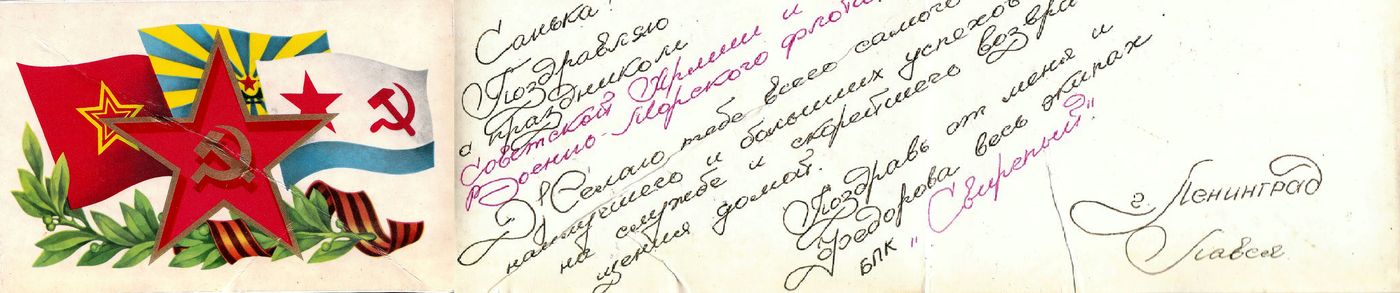 Санька!
Поздравляю
с праздником
Советской Армии и
Военно-Морского флота.
Желаю тебе всего самого
наилучшего и больших успехов
на службе и скорейшего возвра-
щения домой.
Поздравь от меня и
Федорова весь экипаж
БПК "Свирепый".
г. Ленинград
Павел